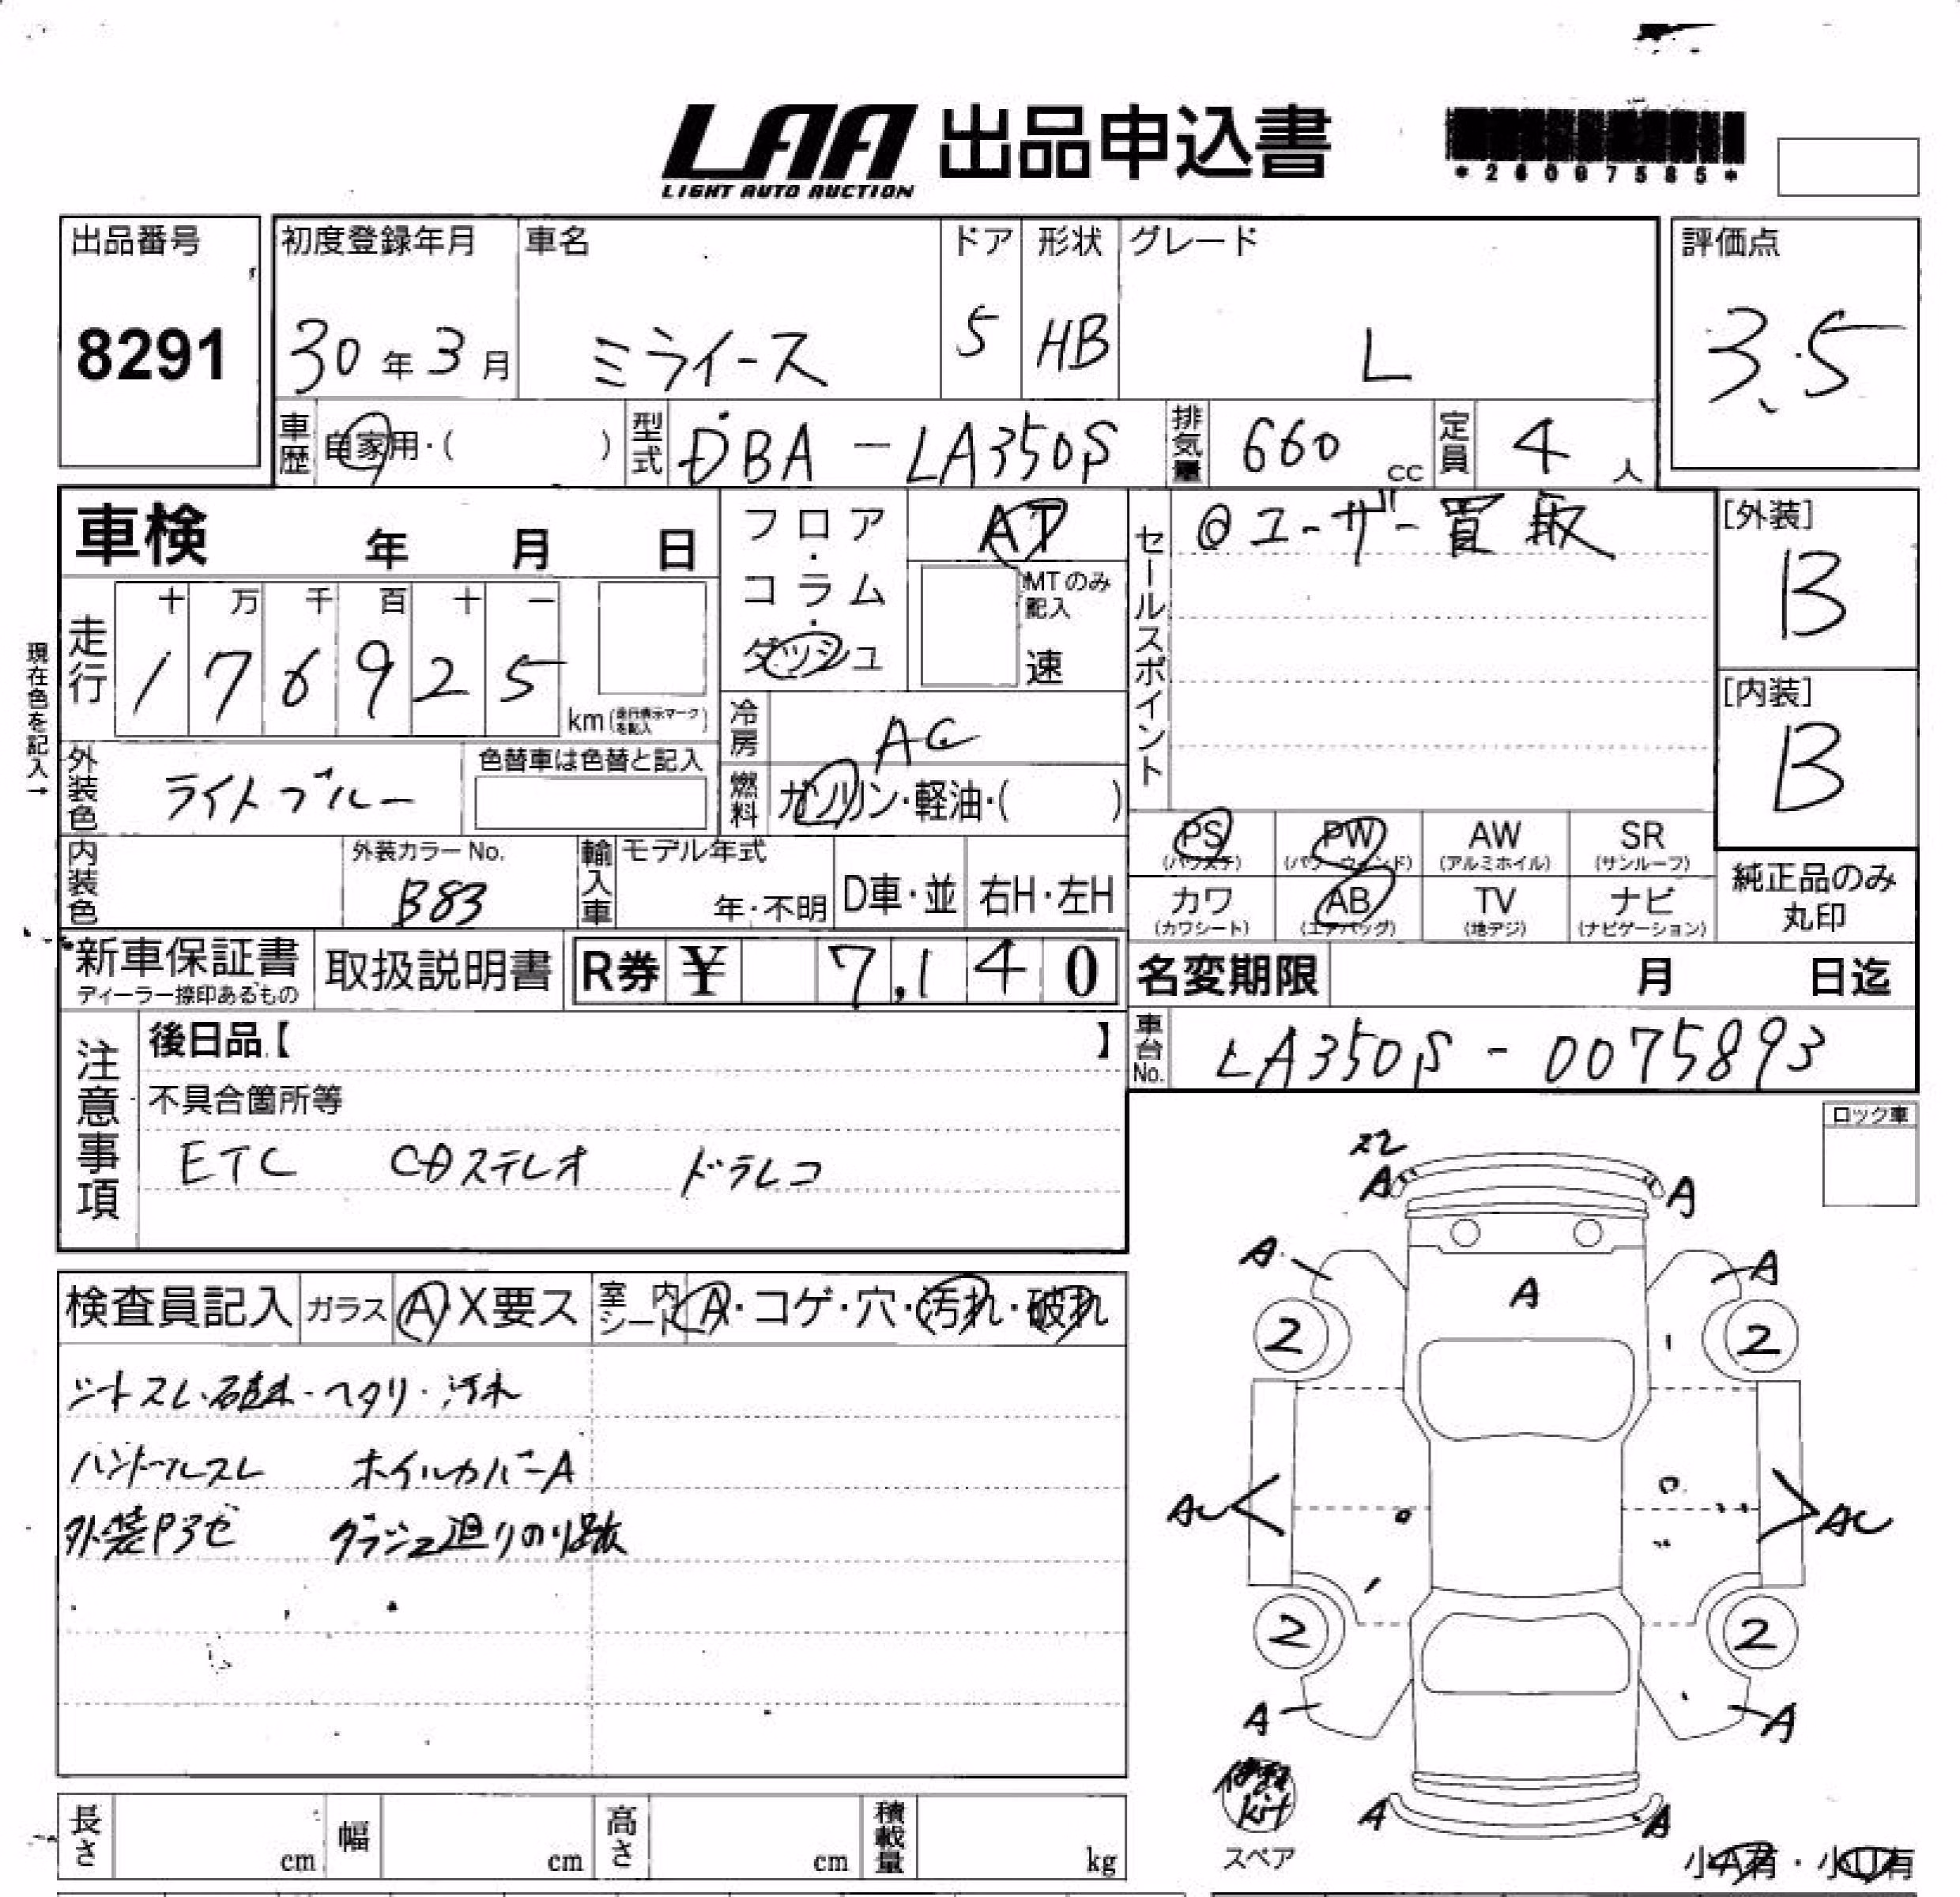 LAA 出品申込書
LIGHT AUTO AUCTION
*26097585*
出品番号 初度登録年月 車名 ドア 形状 グレード 評価点
8291 30年3月 ミライース 5 HB L 3.5
車歴 自家用・( ) 型式 DBA-LA350S 排気量 660 cc 定員 4 人
車検 年 月 日
フロア・コラム・ダッシュ
AT
MTのみ記入
速
セールスポイント
@ユーザー買取
[外装]
B
[内装]
B
現在色を記入→
走行 十 万 千 百 十 一
1 7 6 9 2 5 km(走行表示マークを記入)
冷房 AC
燃料 ガソリン・軽油・( )
外装色 ライトブルー 色替車は色替と記入
内装色 外装カラーNo. B83
輸入車 モデル年式 年・不明 D車・並 右H・左H
PS (パワステ) PW (パワーウィンド) AW (アルミホイル) SR (サンルーフ)
カワ (カワシート) AB (エアバッグ) TV (地デジ) ナビ (ナビゲーション)
純正品のみ丸印
新車保証書 ディーラー捺印あるもの 取扱説明書 R券 ¥ 7,140
名変期限 月 日迄
車台No. LA350S-0075893
注意事項
後日品【 】
不具合箇所等
ETC CDステレオ ドラレコ
ロック車
検査員記入 ガラス A・X要ス 室内シート A・コゲ・穴・汚れ・破れ
シートスレ・破れ・ヘタリ・汚れ
ハンドルスレ ホイルカバーA
外装P3ゼ のり跡
スレ
A A
A A
A
2 2
AC AC
2 2
A A
修理kit
スペア
A A
小A有・小U有
長さ cm 幅 cm 高さ cm 積載量 kg